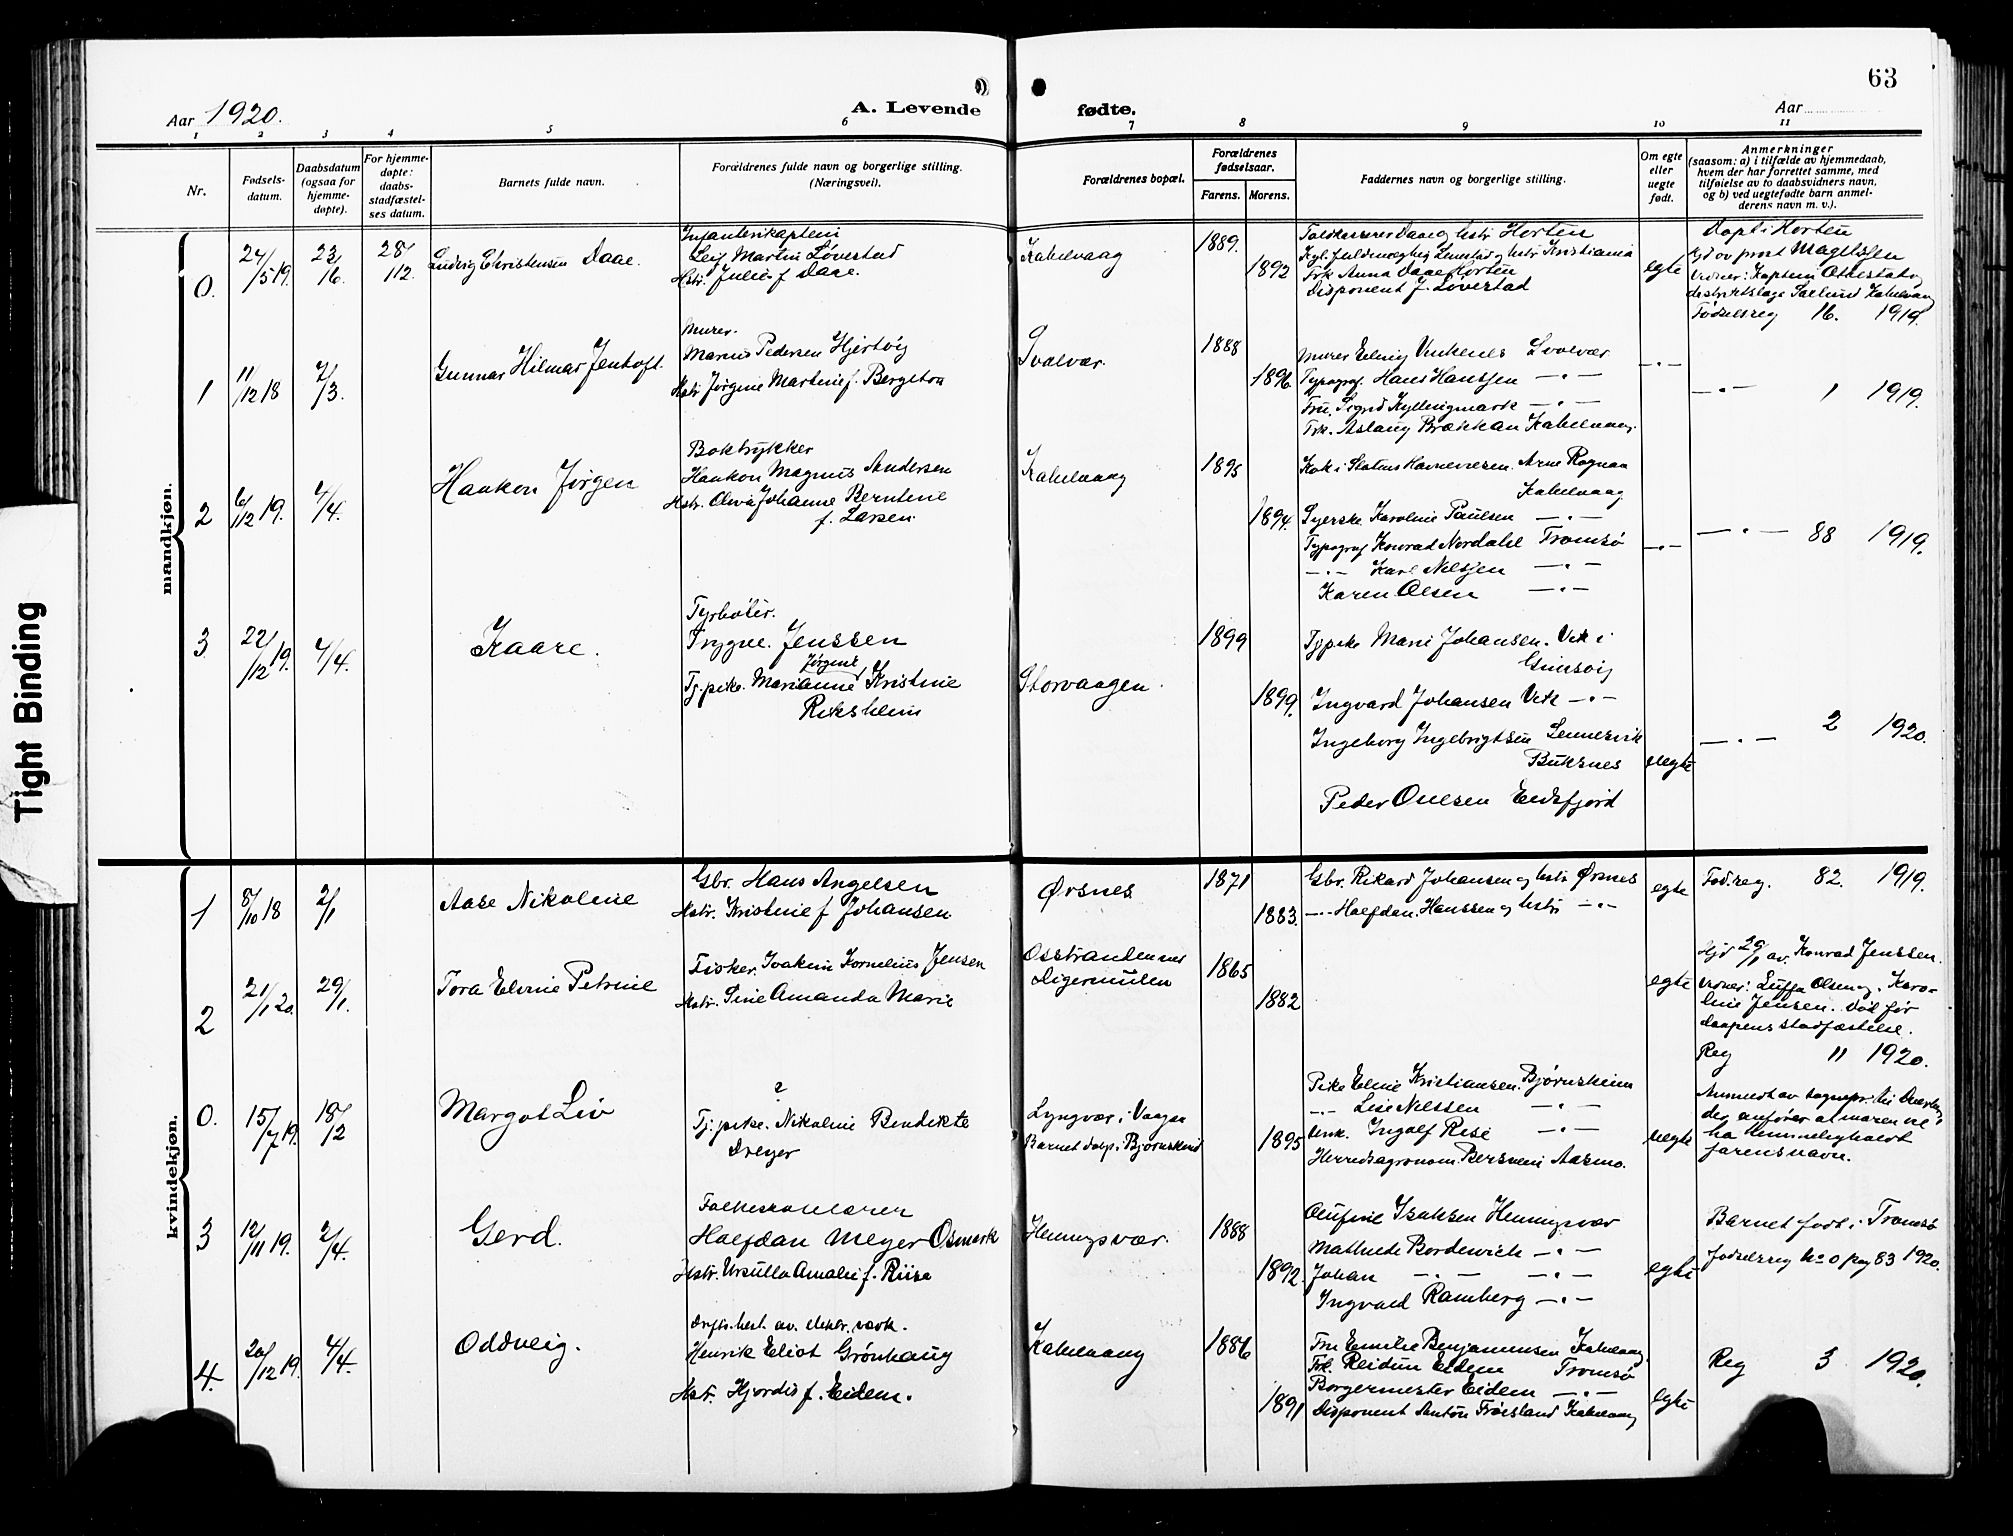 63
Aar 1920.
A. Levende fødte.
Aar
1 2 3 4 5 6 7 8 9 10 11
Nr.
Fødsels-
datum.
Daabsdatum
(ogsaa for
hjemme-
døpte).
For hjemme-
døpte:
daabs-
stadfæstel-
ses datum.
Barnets fulde navn.
Forældrenes fulde navn og borgerlige stilling.
(Næringsvei).
Forældrenes bopæl.
Forældrenes
fødselsaar.
Farens. Morens.
Faddernes navn og borgerlige stilling.
Om egte
eller
uegte
født.
Anmerkninger
(saasom: a) i tilfælde av hjemmedaab,
hvem der har forrettet samme, med
tilføielse av to daabsvidners navn,
og b) ved uegtefødte barn anmel-
derens navn m. v.).
mandkjøn.
0.
24/5 19.
23/6.
28/12.
Ludvig Christensen Daae.
Infanterikaptein
Leif Martin Løvestad
Hstr. Julie f Daae.
Kabelvaag
1889.
1892
Toldkasserer Daae og hstr Horten
Frk Anna Daae Horten
Disponent J. Løvestad
egte
Døpt i Horten
Kabelvaag
Fødselsreg 16. 1919.
1
11/12 18
2/3.
Gunnar Hilmar Jentoft.
Murer.
Marius Pedersen Hjertvig
Hstr Jørgine Martine f. Bergston
Svolvær.
1888
1896.
Murer Svolvær
Typograf. Hans Hanssen — " —
Fru. Signe Kyllingmark — " —
Frk. Aslaug Brækkan Kabelvaag.
— " —
— " — 1 1919.
2
6/12 19.
4/4.
Haakon Jørgen
Boktrykker
Haakon Magnus Andersen
Hstr. Oliva Johanne Berntine
f. Larsen
Kabelvaag
1895
1894.
Kok i Statens Havnevesen. Arne Rognan
Kabelvaag
Syerske Karoline Paulsen — " —
Typograf Konrad Nordahl Tromsø
— " — Karl Nilssen — " —
Karen Olsen — " —
— " —
— " — 88 1919.
3
22/12 19.
4/4.
Kaare.
Fyrbøter.
Trygve. Jenssen
Jørgine
Tj.pike. Marianne Kristine
Reksheim
Storvaagen.
1899
1899.
Tj pike Marie Johansen. Vik i
Gimsøy
Ingvard Johansen Vik — " —
Ingeborg Ingebrigtsen Sennesvik
Buksnes
Peder Olsen Eidsfjord
uegte
— " — 2 1920.
kvindekjøn.
1
8/10 18
2/1
Aase Nikoline
Gbr. Hans Angelsen
Hstr. Kristine f Johansen
Ørsnes
1871
1883.
Gbr. Rikard Johansen og hstr Ørsnes
— " — Halfdan. Hanssen og hstr — " —
egte
Fød.reg. 82. 1919.
2
21/1 20.
29/1.
Tora Elvine Petrine
Fisker. Joakim Kornelius Jensen
Hstr. Sine Amanda Marie
Digermulen
1865
1882
egte
Hjd 29/1 av. Konrad Jenssen.
vidner: Luffa Olsen og. Karo-
line Jensen. Død før
daapens stadfæstelse.
Reg 11 1920.
0.
15/7 19.
18/12
Margot Liv
?
Tj.pike. Nikoline Bendikte
Dreyer
Lyngvær i Vaagan
Barnet døpt i Bjørnskind
1895
Pike Eline Kristiansen. Bjørnsheim
— " — Lise Nilssen — " —
Ingolf Rise — " —
Herredsagronom Aasmo.
uegte
Anmeldt av sognepr. til
der anfører at moren vil
ha hemmeligholdt
farens navn.
3
12/11 19.
2/4.
Gerd.
Halfdan Meyer Osmark
Hstr. Ursulla Amalie f. Riise
Henningsvær.
1888
1892.
Olufine Isaksen Henningsvær
Mathilde Bordevich — " —
Johan — " — — " —
Ingvald Ramberg — " —
egte
Barnet født i Tromsø
fødselsreg No 0 pag 83 1920.
4.
20/12 19.
4/4.
Oddveig.
Driftsbest. av. elektr. verk.
Henrik Eliot Grønhaug
Hstr. Hjørdis f. Eidem.
Kabelvaag
1886
1891
Fru Emilie Benjaminsen Kabelvaag.
Frk. Reidun Eidem Tromsø
Borgermester Eidem — " —
Disponent Anton Trøesland Kabelvaag
egte
Reg 3 1920.
Tight Binding